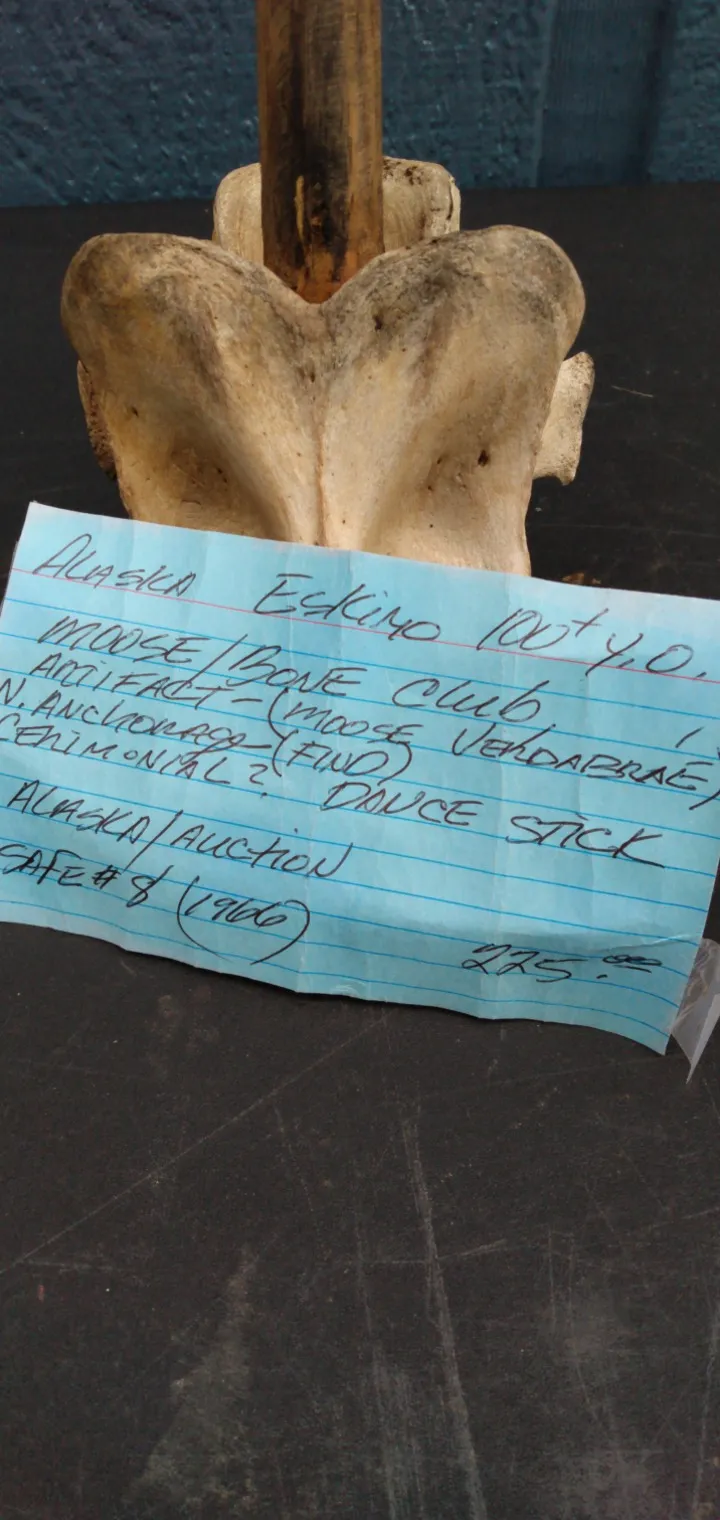 ALASKA ESKIMO 100+ Y.O.
MOOSE/BONE CLUB
ARTIFACT-(MOOSE VERDABRAE)
N. ANCHORAGE-(FIND)
CERIMONIAL? DANCE STICK
ALASKA/AUCTION
SAFE #8 (1966)
225.00